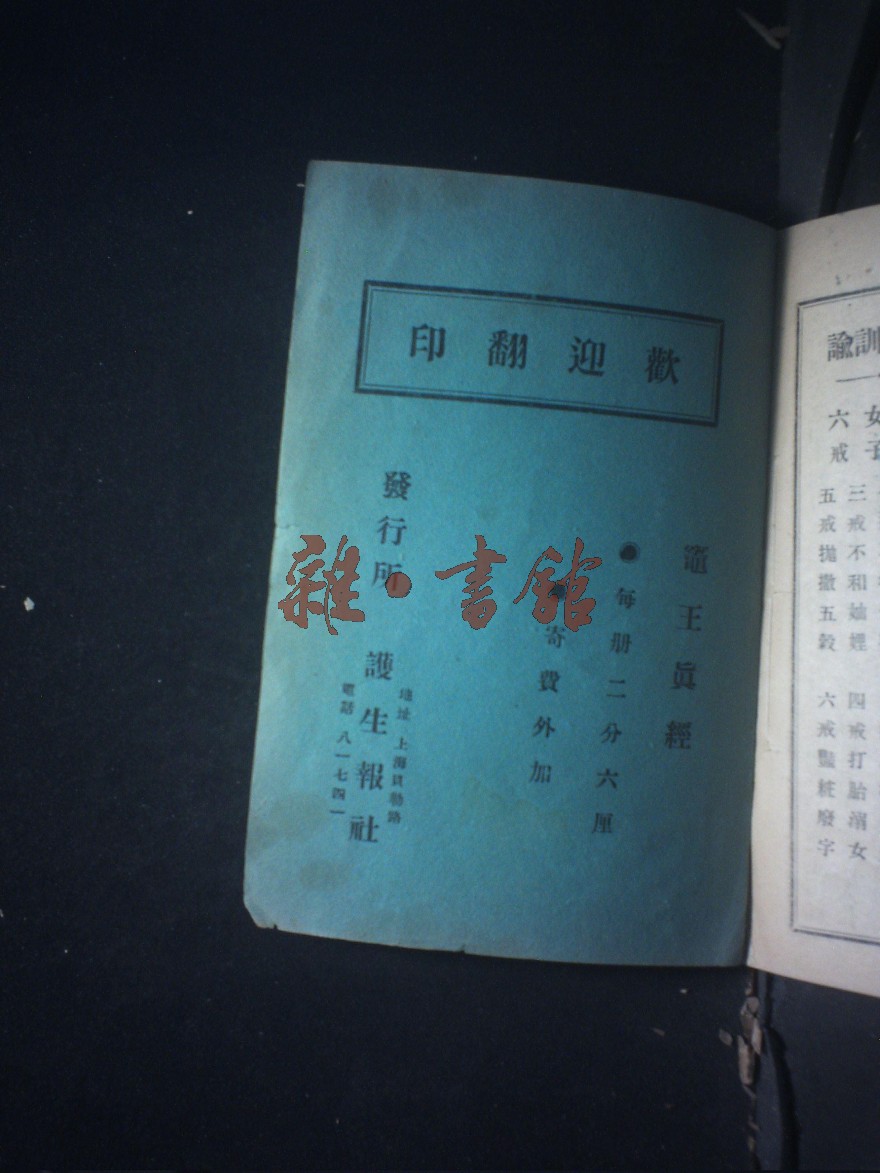 歡迎翻印
竈王眞經
●每册二分六厘
●寄費外加
發行所 護生報社
地址 上海貝勒路
電話 八一七四一
雜·書館
訓諭
女子
六戒
三戒不和妯娌 四戒打胎溺女
五戒拋撒五穀 六戒豔粧廢字